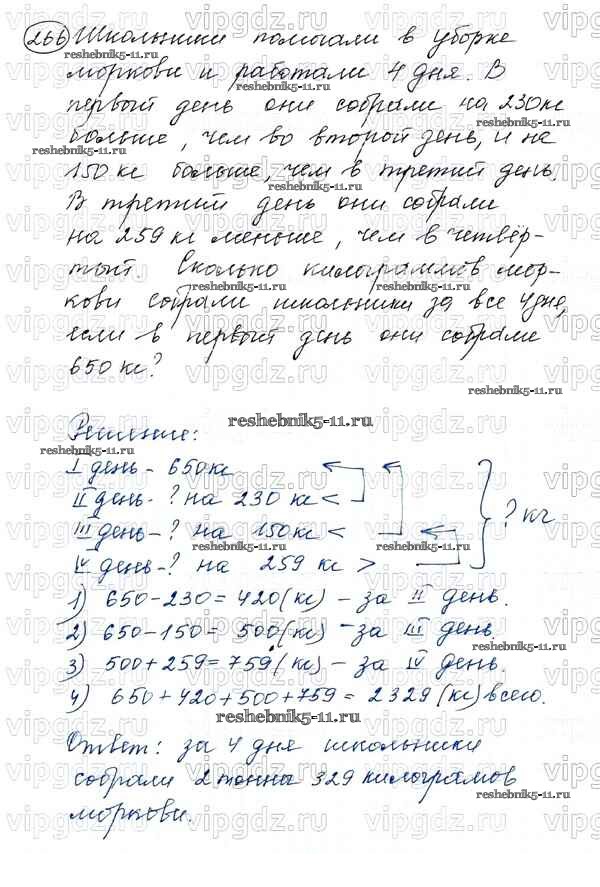 266 Школьники помогали в уборке
моркови и работали 4 дня. В
первый день они собрали на 230 кг
больше, чем во второй день, и на
150 кг больше, чем в третий день.
В третий день они собрали
на 259 кг меньше, чем в четвёр-
тый. Сколько килограммов мор-
кови собрали школьники за все 4 дня,
если в первый день они собрали
650 кг?
reshebnik5-11.ru
Решение:
I день - 650 кг
II день - ? на 230 кг <
III день - ? на 150 кг <
IV день - ? на 259 кг >
? кг
1) 650 - 230 = 420 (кг) - за II день.
2) 650 - 150 = 500 (кг) - за III день.
3) 500 + 259 = 759 (кг) - за IV день.
4) 650 + 420 + 500 + 759 = 2329 (кг) всего.
reshebnik5-11.ru
Ответ: за 4 дня школьники
собрали 2 тонна 329 килограмов
моркови.
vipgdz.ru